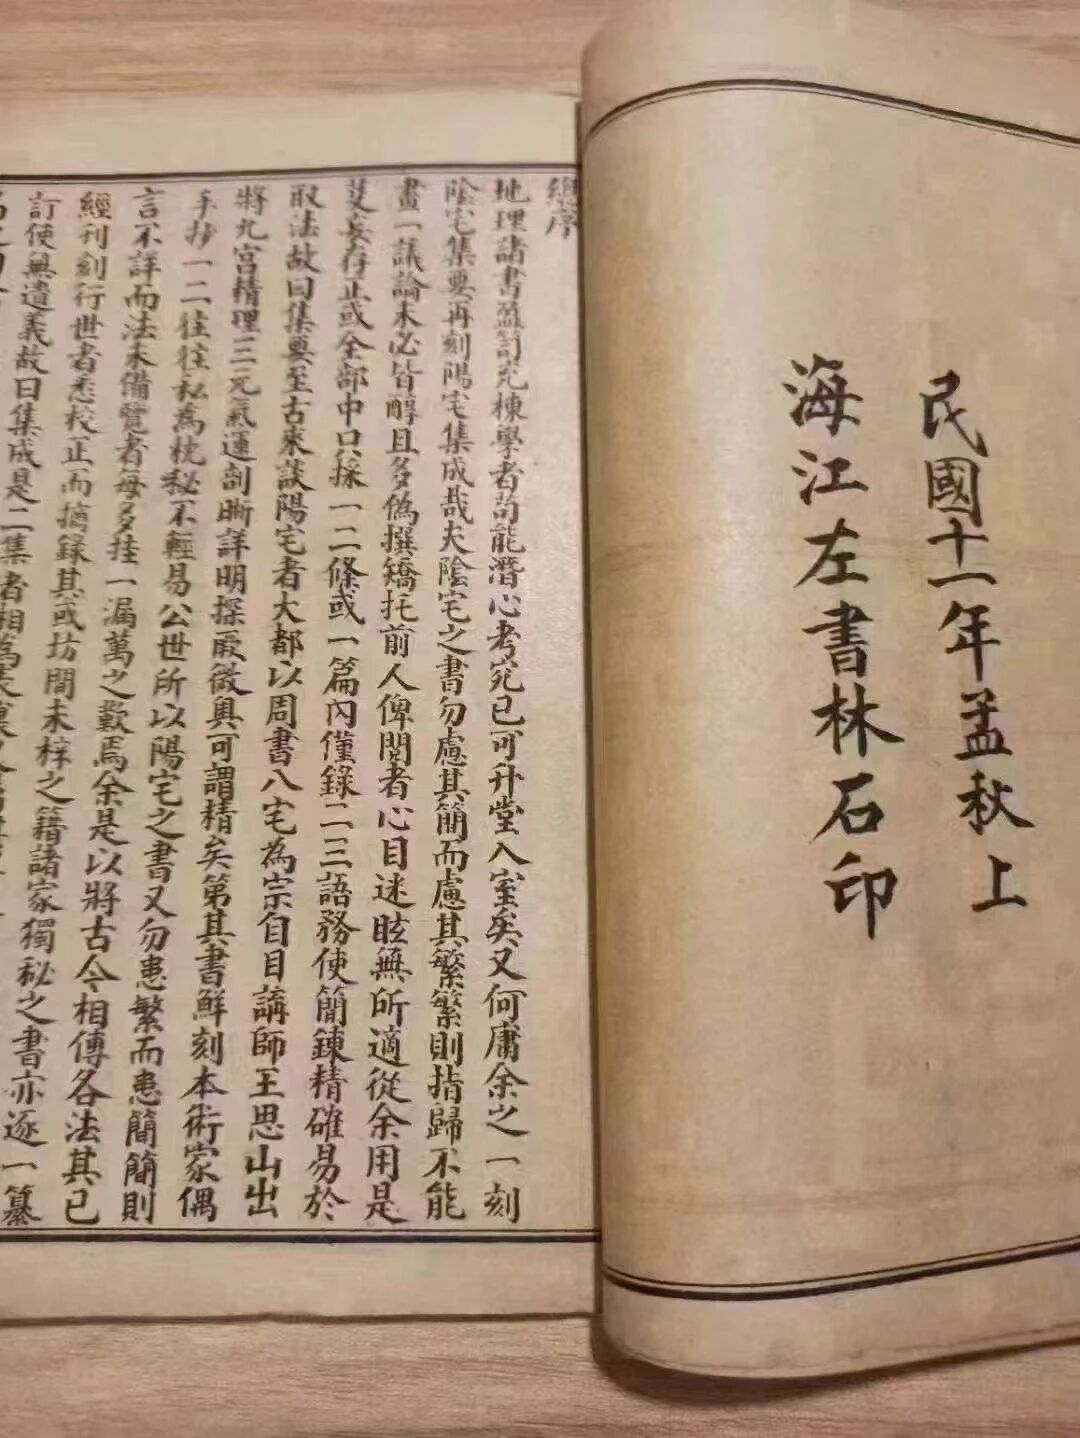 民國十一年孟秋上
海江左書林石印
總序
地理諸書盈笥充棟學者苟能潛心考究已可升堂入室矣又何庸余之一刻
陰宅集要再刻陽宅集成哉夫陰宅之書勿慮其簡而慮其繁繁則指歸不能
畫一議論未必皆醇且多偽撰矯托前人俾閱者心目迷眩無所適從余用是
芟妄存正或全部中只採一二條或一篇內僅錄二三語務使簡鍊精確易於
取法故曰集要至古來談陽宅者大都以周書八宅為宗自目講師王思山出
將九宮精理三元氣運剖晰詳明探厥微奧可謂精矣第其書鮮刻本術家偶
手抄一二往往私為枕秘不輕易公世所以陽宅之書又勿患繁而患簡簡則
言不詳而法未備覽者每多挂一漏萬之歎焉余是以將古今相傳各法其已
經刊刻行世者悉校正而摘錄其或坊間未梓之籍諸家獨秘之書亦逐一纂
訂使無遺義故曰集成是二集者相為表裏